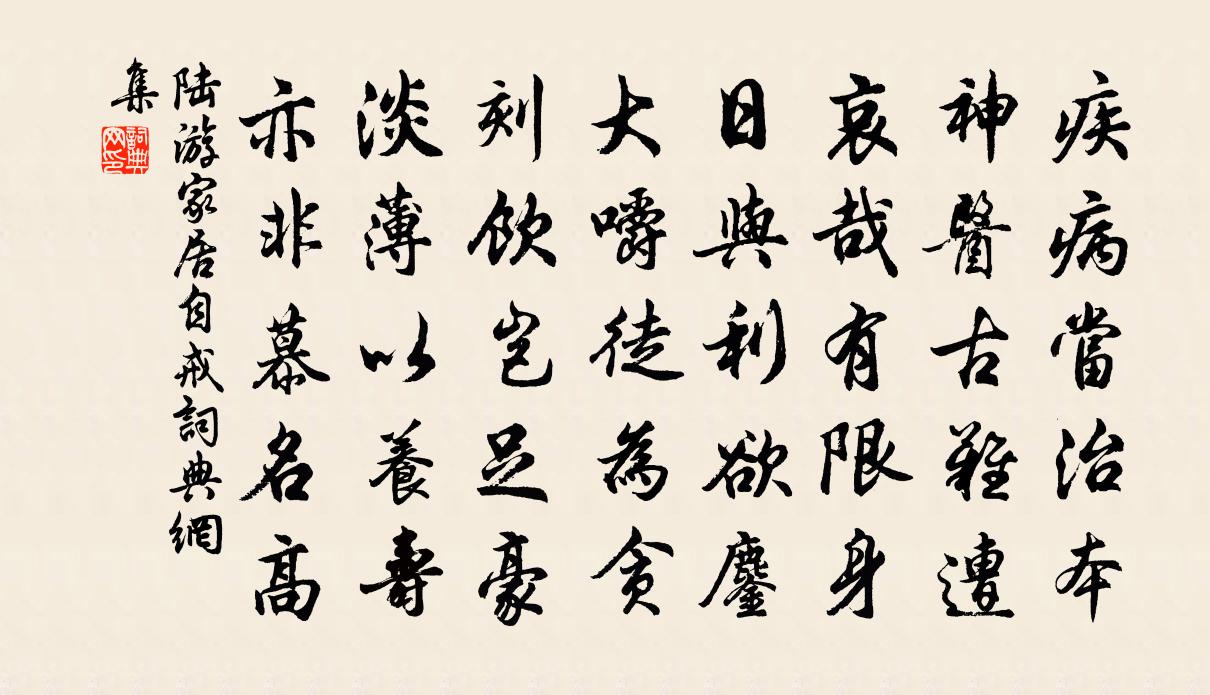 疾病當治本
神醫古難遭
哀哉有限身
日與利欲鏖
大嚼徒為貪
剡飲豈足豪
淡薄以養壽
亦非慕名高
陸游家居自戒詞典網
集
詞典網印